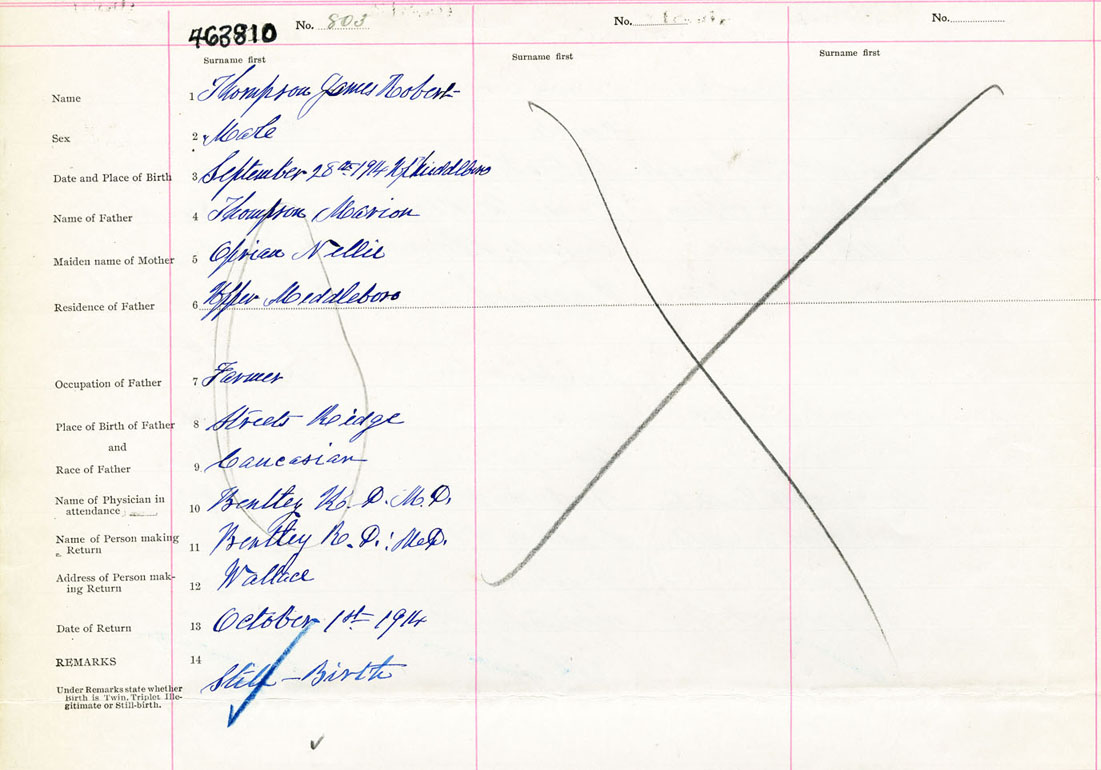 463810 No. 803 No. No.
Surname first Surname first Surname first
Name 1 Thompson James Robert
Sex 2 Male
Date and Place of Birth 3 September 28th 1914 Up Middleboro
Name of Father 4 Thompson Marion
Maiden name of Mother 5 Nellie
Residence of Father 6 Upper Middleboro
Occupation of Father 7 Farmer
Place of Birth of Father 8 Streets Ridge
and
Race of Father 9 Caucasian
Name of Physician in
attendance 10 Bentley R. D. M.D.
Name of Person making
Return 11 Bentley R. D. M.D.
Address of Person mak-
ing Return 12 Wallace
Date of Return 13 October 1st 1914
REMARKS 14
Still-Birth
Under Remarks state whether
Birth is Twin, Triplet Ille-
gitimate or Still-birth.